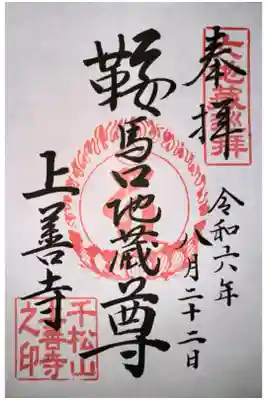 奉拝
六地蔵巡拝
令和六年
八月二十二日
鞍馬口地蔵尊
上善寺
千松山
善寺
之印